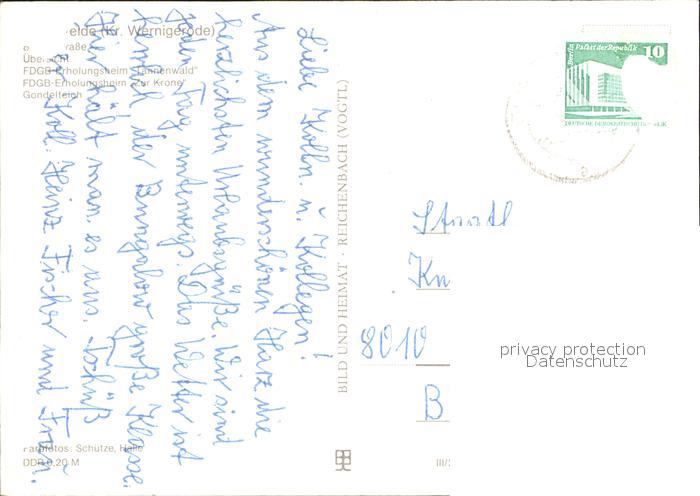 elde (Kr. Wernigerode)
raße
FDGB-Erholungsheim "Tannenwald"
FDGB-Erholungsheim "Zur Krone"
Gondelteich
Liebe Kolln. u. Kollegen!
Aus dem wunderschönen Harz die
herzlichsten Urlaubsgrüße. Wir sind
jeden Tag unterwegs. Das Wetter ist
herrlich der Bungalow große Klasse.
Hier hält man es aus. Tschüß
Koll. Heinz Fischer und Frau.
Farbfotos: Schütze, Halle
DDR 0,20 M
BILD UND HEIMAT · REICHENBACH (VOGTL)
III/
Berlin Palast der Republik 10
8010
B
privacy protection
Datenschutz